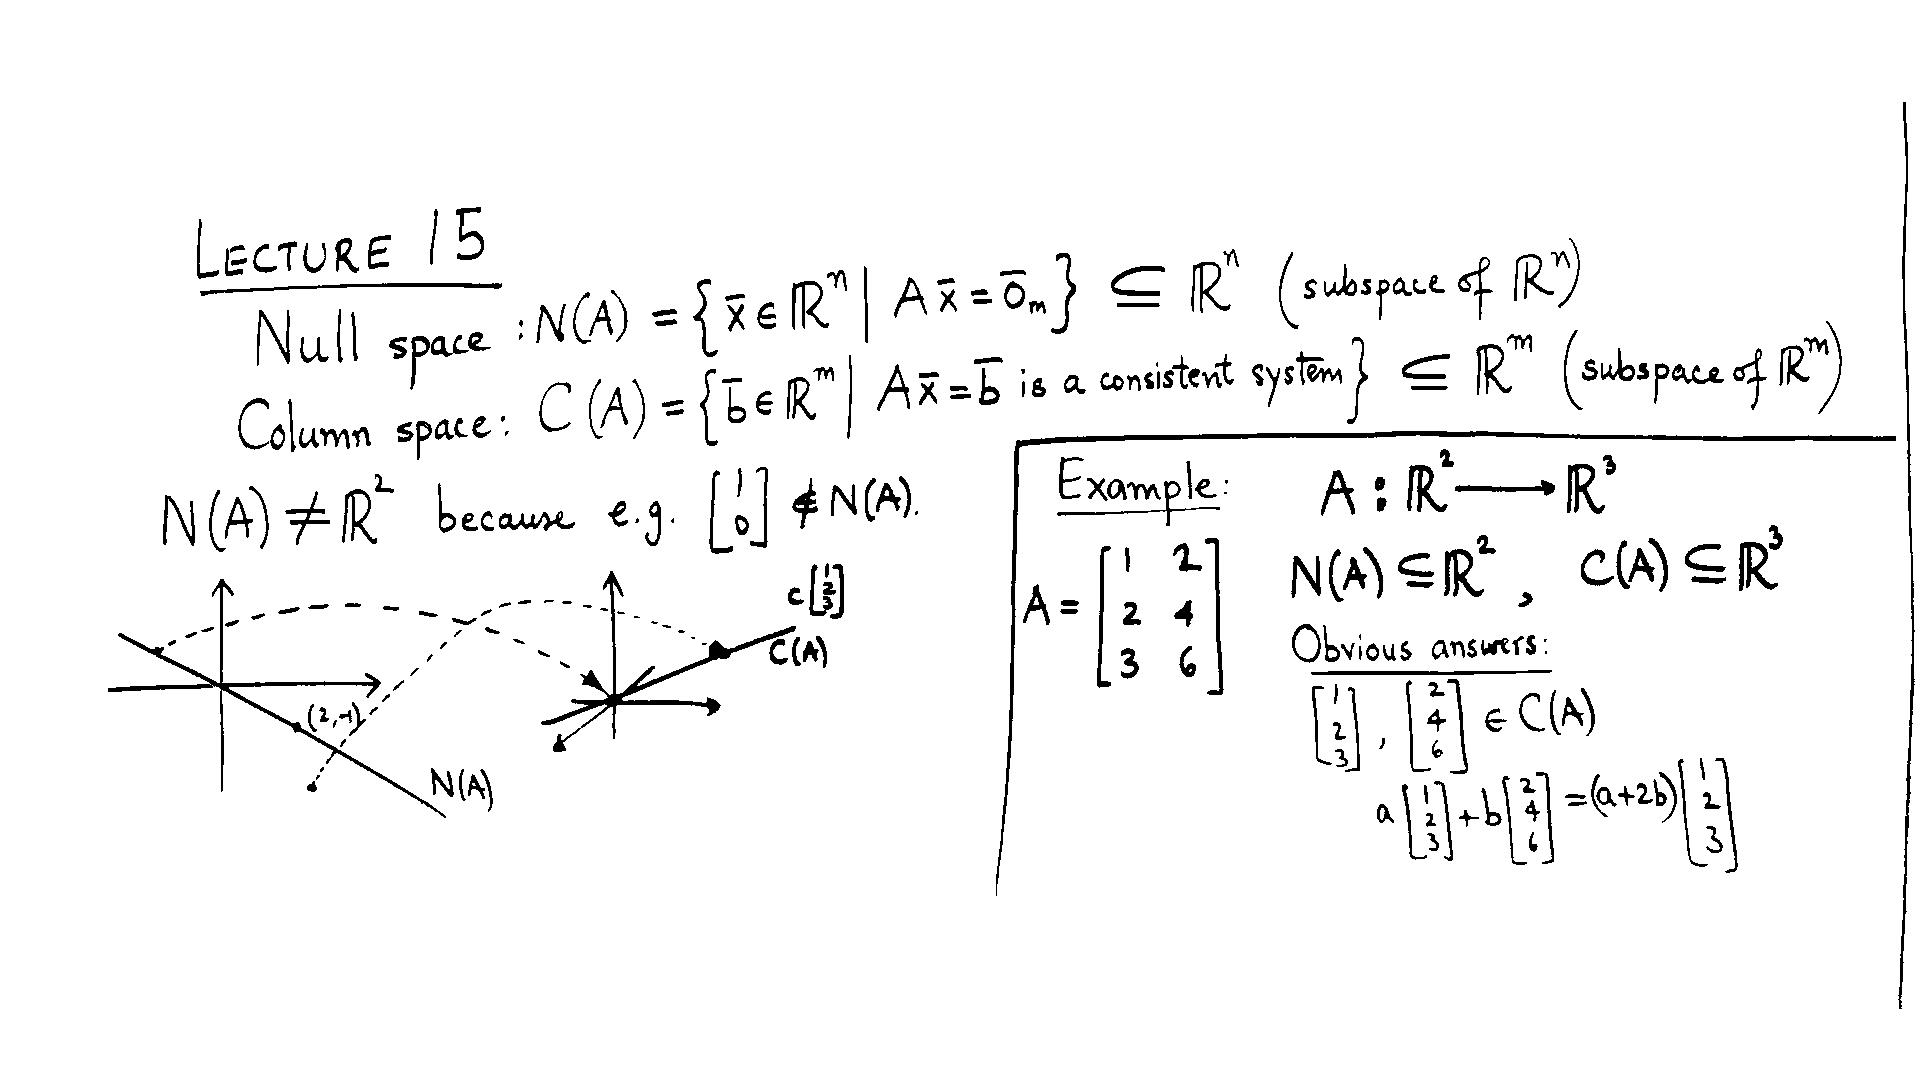 LECTURE 15
Null space : N(A) = { x̄ ∈ ℝⁿ | A x̄ = 0̄ₘ } ⊆ ℝⁿ (subspace of ℝⁿ)
Column space : C(A) = { b̄ ∈ ℝᵐ | A x̄ = b̄ is a consistent system } ⊆ ℝᵐ (subspace of ℝᵐ)
N(A) ≠ ℝ² because e.g. [1 0] ∉ N(A).
c[1 2 3]
C(A)
(2,-1)
N(A)
Example:
A : ℝ² → ℝ³
A = [1 2
2 4
3 6]
N(A) ⊆ ℝ² , C(A) ⊆ ℝ³
Obvious answers:
[1 2 3] , [2 4 6] ∈ C(A)
a[1 2 3] + b[2 4 6] = (a+2b)[1 2 3]